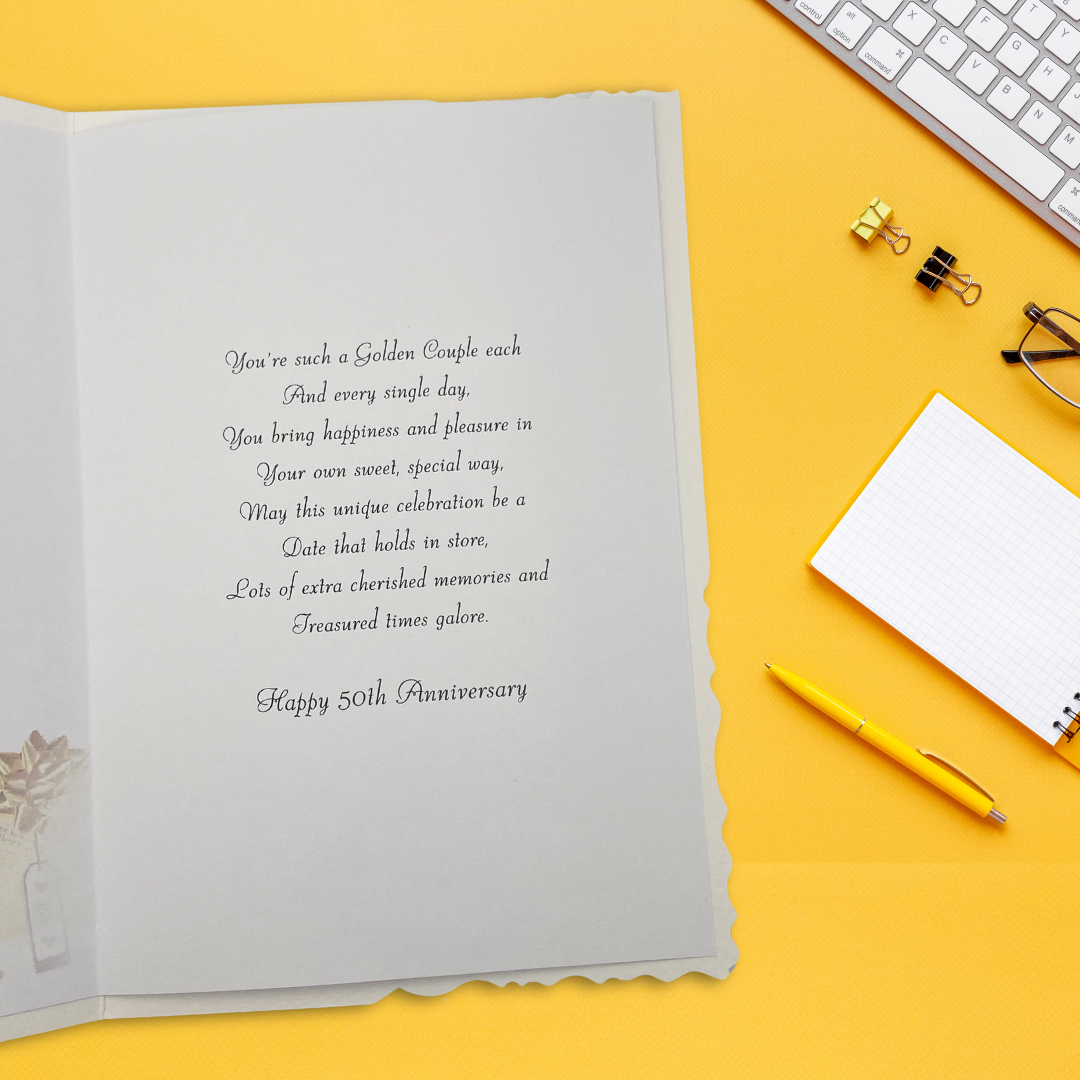 You're such a Golden Couple each
And every single day,
You bring happiness and pleasure in
Your own sweet, special way,
May this unique celebration be a
Date that holds in store,
Lots of extra cherished memories and
Treasured times galore.
Happy 50th Anniversary
control
alt
option
⌘
command
X
C
V
B
N
M
F
G
H
J
T
Y
⌘
command